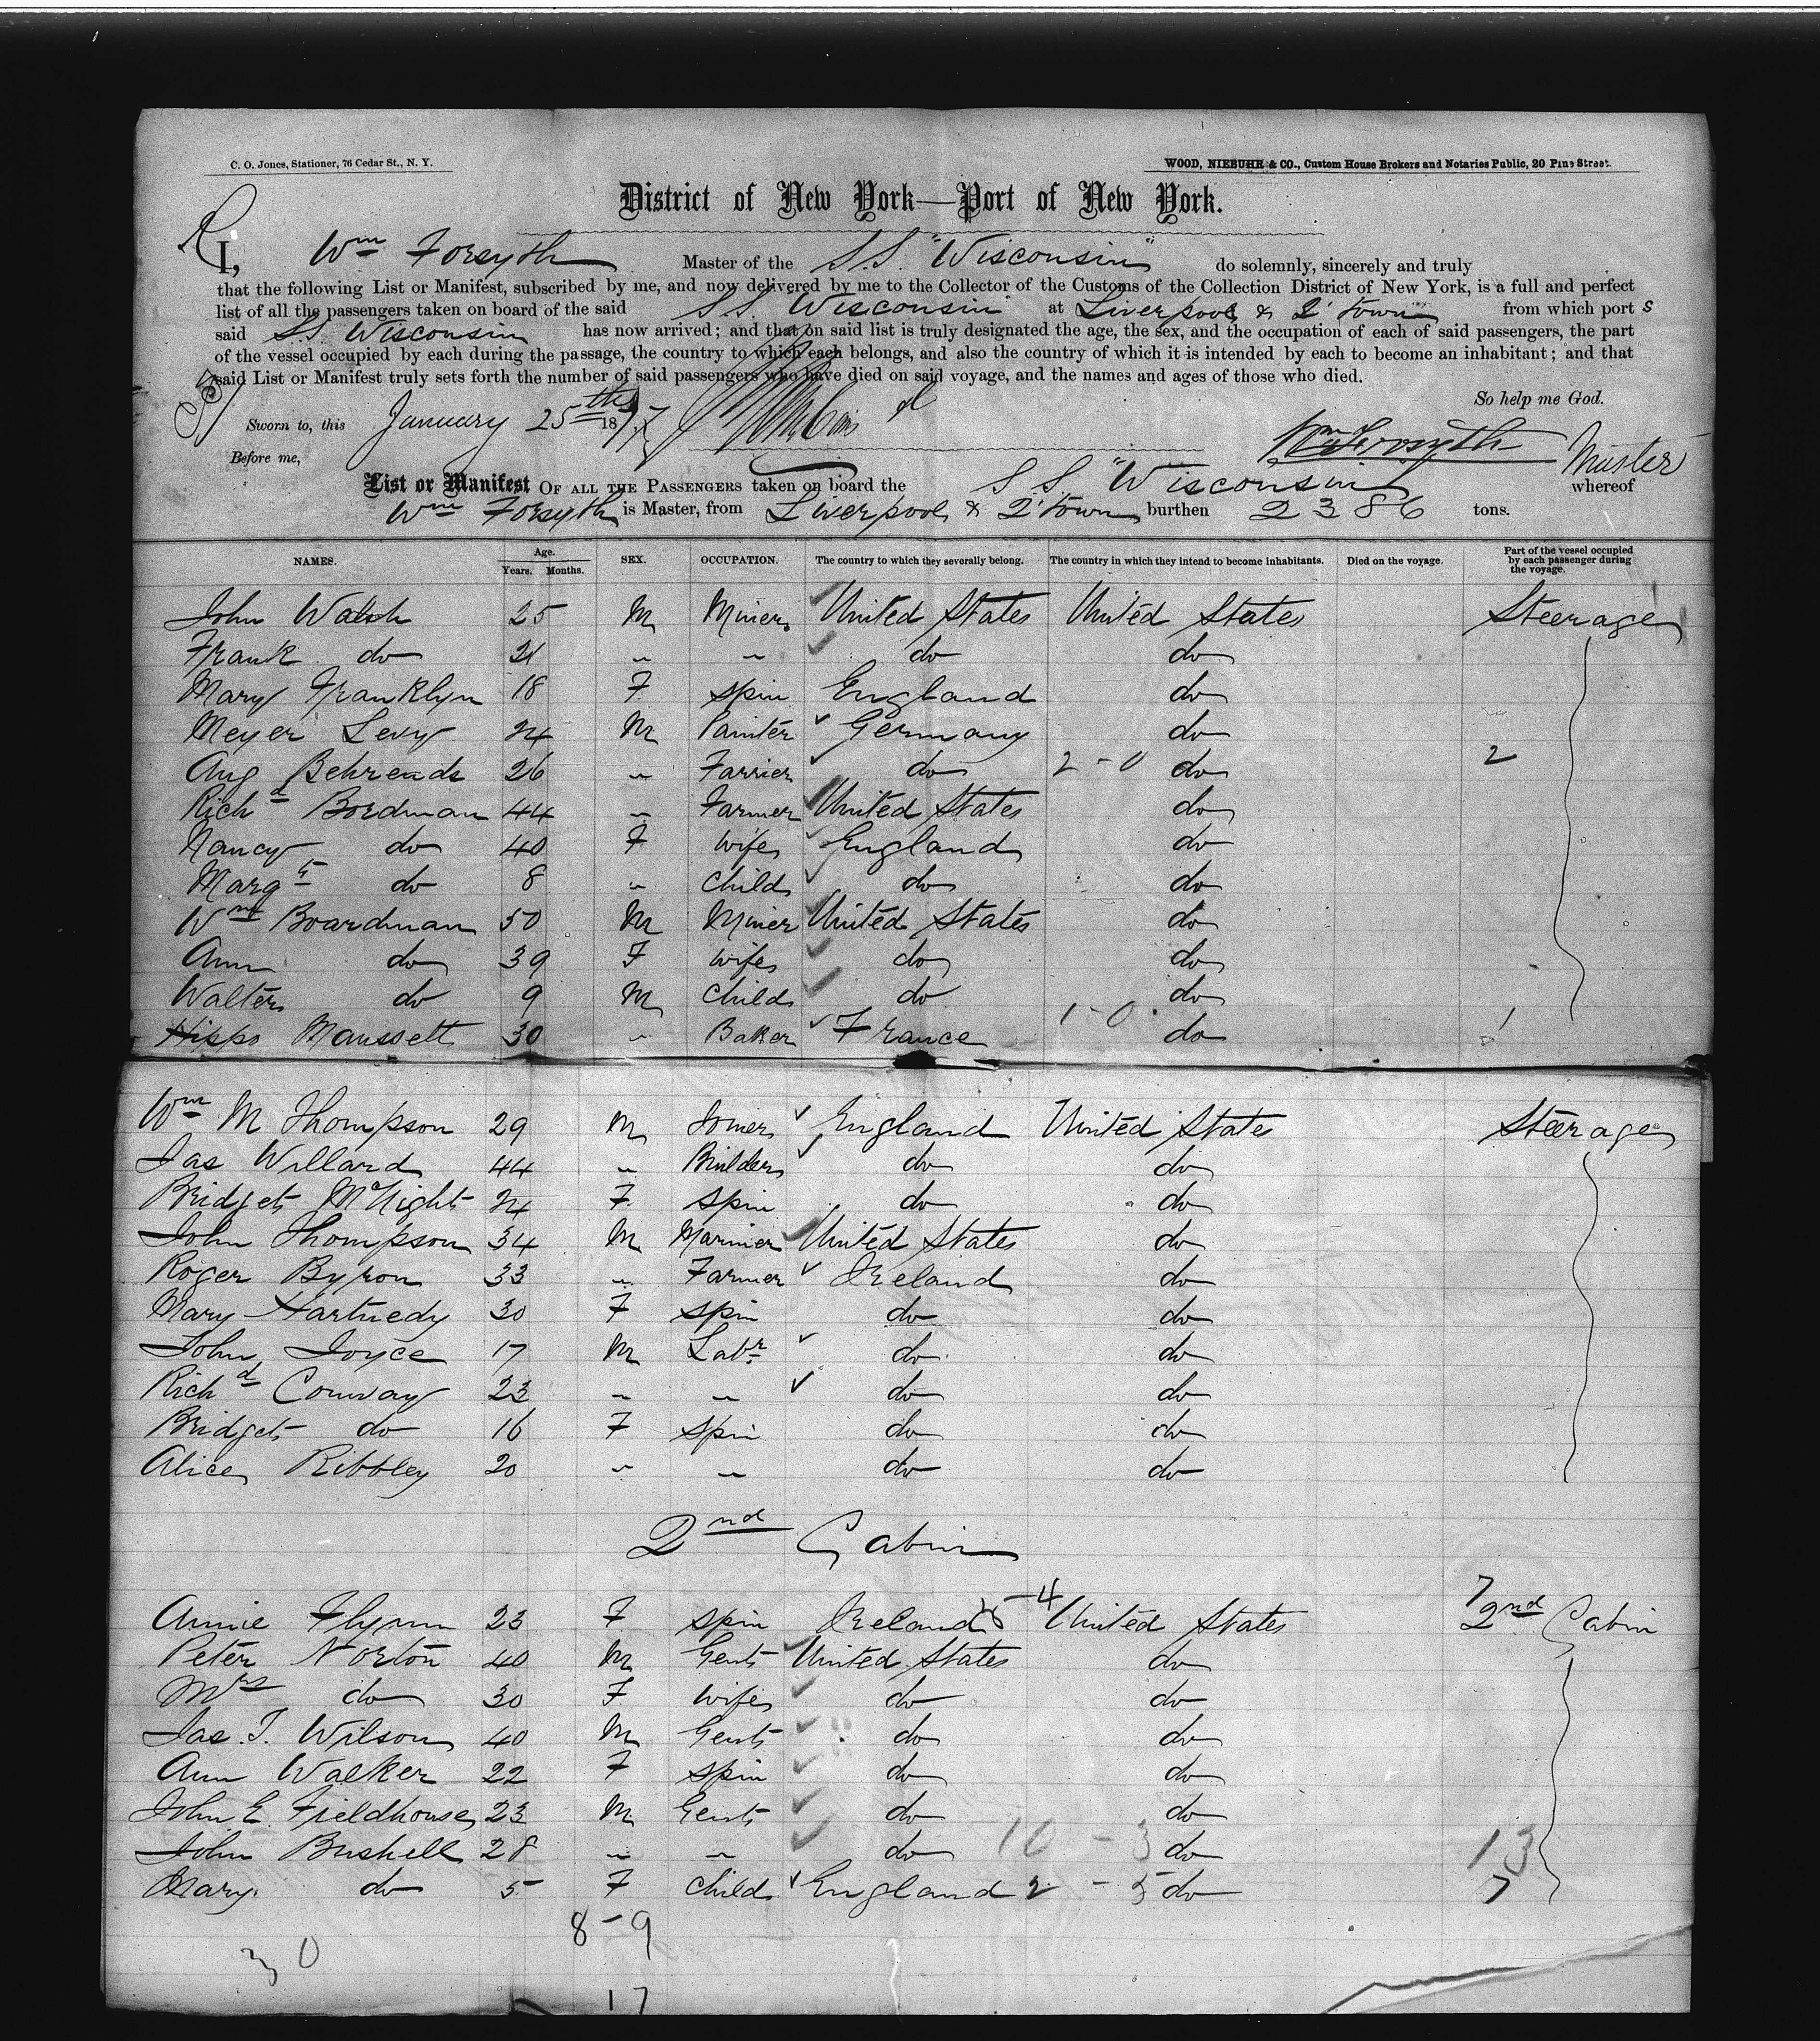 C. O. Jones, Stationer, 76 Cedar St., N. Y.
WOOD, NIEBUHR & CO., Custom House Brokers and Notaries Public, 20 Pine Street.
District of New York—Port of New York.
I, Wm Forsyth Master of the S.S. "Wisconsin" do solemnly, sincerely and truly
that the following List or Manifest, subscribed by me, and now delivered by me to the Collector of the Customs of the Collection District of New York, is a full and perfect
list of all the passengers taken on board of the said S.S. Wisconsin at Liverpool & Q'town from which port s
said S.S. Wisconsin has now arrived; and that on said list is truly designated the age, the sex, and the occupation of each of said passengers, the part
of the vessel occupied by each during the passage, the country to which each belongs, and also the country of which it is intended by each to become an inhabitant; and that
said List or Manifest truly sets forth the number of said passengers who have died on said voyage, and the names and ages of those who died.
So help me God.
Sworn to, this January 25th 1877
Wm Forsyth Master
Before me,
List or Manifest OF ALL THE PASSENGERS taken on board the S.S. "Wisconsin" whereof
Wm Forsyth is Master, from Liverpool & Q'town burthen 2386 tons.
NAMES. Age. Years. Months. SEX. OCCUPATION. The country to which they severally belong. The country in which they intend to become inhabitants. Died on the voyage. Part of the vessel occupied by each passenger during the voyage.
John Walsh 25 M Miner United States United States Steerage
Frank do 21 " " do do
Mary Franklyn 18 F spin England do
Meyer Levy 24 M Painter Germany do
Aug Behrends 26 " Farrier do 2-0 do 2
Richd Bordman 44 " Farmer United States do
Nancy do 40 F wife England do
Margt do 8 " child do do
Wm Boardman 50 M Miner United States do
Ann do 39 F wife do do
Walter do 9 M child do do
Hippo Maussett 30 " Baker France 1-0 do 1
Wm M Thompson 29 M Joiner England United States Steerage
Jas Willard 44 " Builder do do
Bridget McNight 24 F spin do do
John Thompson 34 M Mariner United States do
Roger Byron 33 " Farmer Ireland do
Mary Hartnedy 30 F spin do do
John Joyce 17 M Labr do do
Richd Conway 23 " " do do
Bridget do 16 F spin do do
Alice Ribbley 20 " " do do
2nd Cabin
Annie Flynn 23 F spin Ireland 5-4 United States 7 2nd Cabin
Peter Norton 40 M Gent United States do
Mrs do 30 F wife do do
Jas. T. Wilson 40 M Gent do do
Ann Walker 22 F spin do do
John E. Fieldhouse 23 M Gent do do
John Bushell 28 " " do 10 - 3 do 13
Mary do 5 F child England 2 - 5 do 7
8-9
30
17